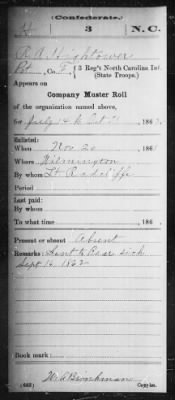 (Confederate.)
H 3 N.C.
R. A. Hightower
Pvt, Co. F, 3 Reg't North Carolina Inf.
(State Troops.)
Appears on
Company Muster Roll
of the organization named above,
for July 14 to Oct 31, 186
Enlisted:
When Nov. 20, 186
Where Wilmington
By whom Lt Radcliffe
Period
Last paid:
By whom
To what time , 186
Present or absent Absent
Remarks: Sent to Rear sick
Sept 14, 1862
Book mark:
(642) W. A. Brinkman
Copyist.